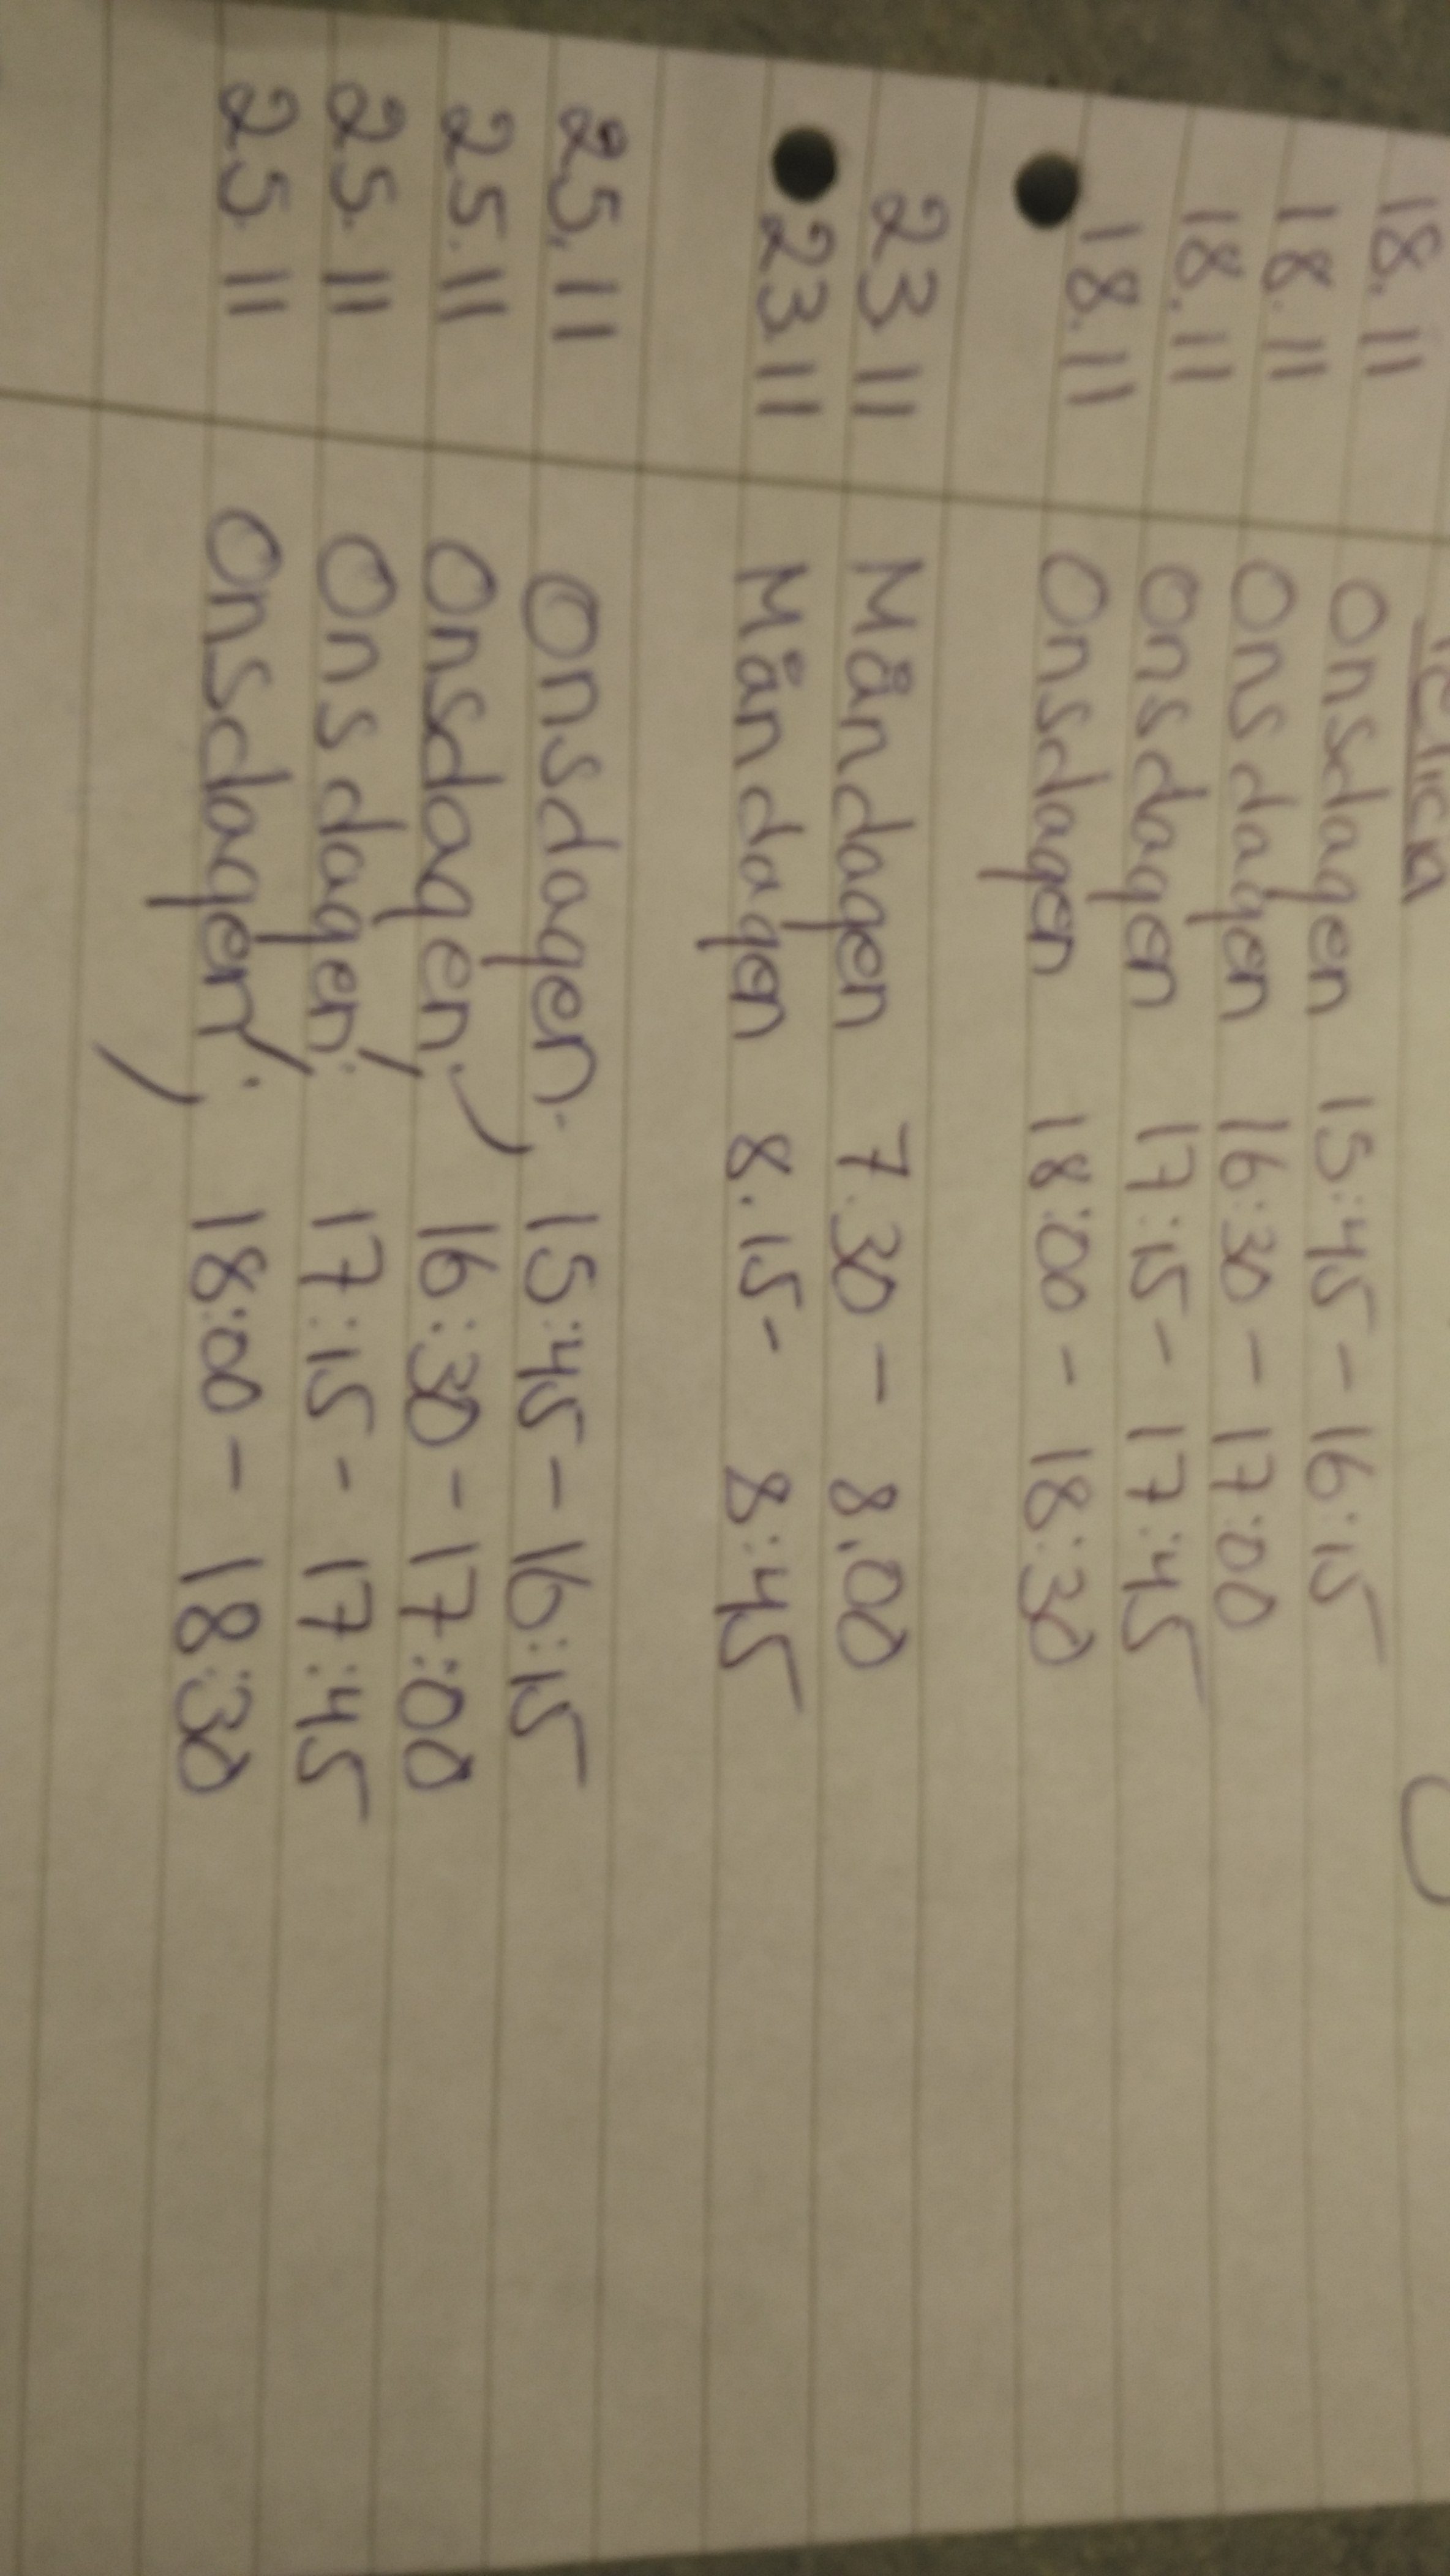 18.11 Onsdagen 15:45 - 16:15
18.11 Onsdagen 16:30 - 17:00
18.11 Onsdagen 17:15 - 17:45
18.11 Onsdagen 18:00 - 18:30
23 11 Måndagen 7.30 - 8.00
23.11 Måndagen 8.15 - 8:45
25.11 Onsdagen; 15:45 - 16:15
25.11 Onsdagen; 16:30 - 17:00
25.11 Onsdagen; 17:15 - 17:45
25.11 Onsdagen; 18:00 - 18:30